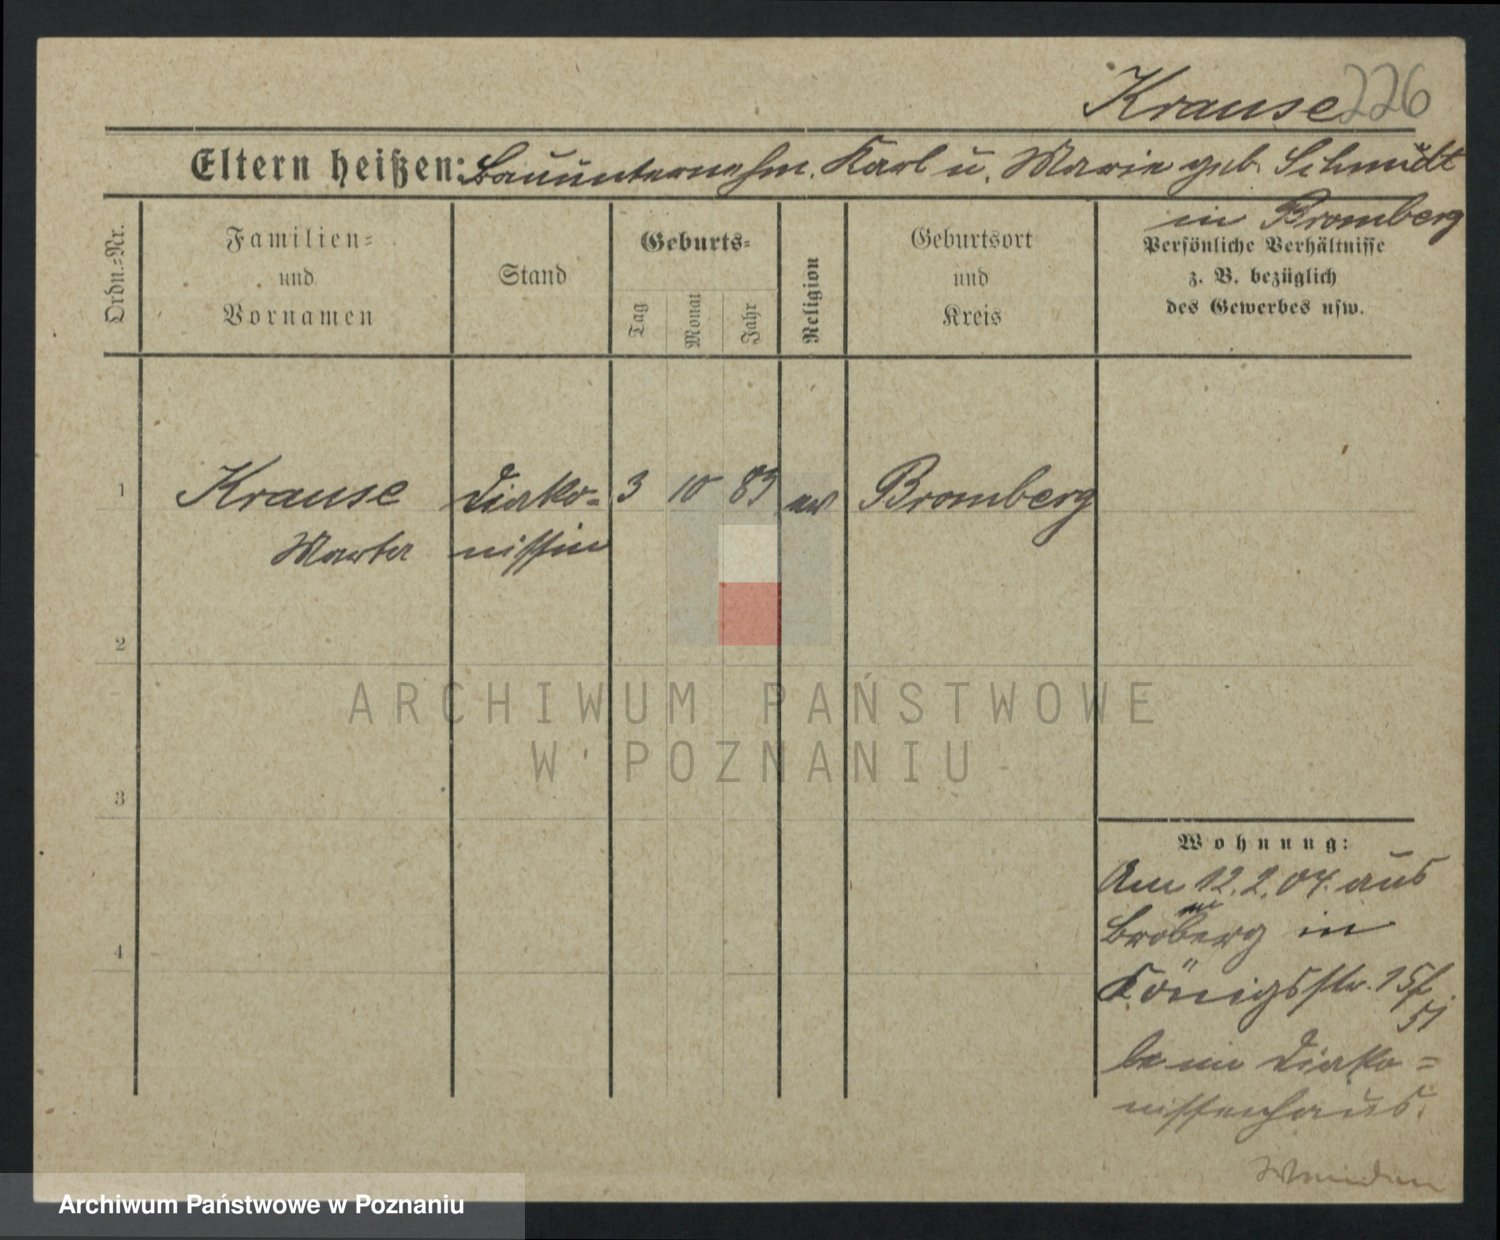 Krause 226
Eltern heißen: Bauunternehm. Karl u. Marie geb. Schmidt
in Bromberg
Ordn.-Nr.
Familien-
und
Vornamen
Stand
Geburts-
Tag
Monat
Jahr
Religion
Geburtsort
und
Kreis
Persönliche Verhältnisse
z. B. bezüglich
des Gewerbes usw.
1
Krause Diako- 3 10 83 ev Bromberg
Marta nissin
2
ARCHIWUM PAŃSTWOWE
W POZNANIU
3
4
Wohnung:
Am 12.2.04. aus
Broberg in
Königsstr. 15/
51
beim Diako-
nissenhaus.
Wenden
Archiwum Państwowe w Poznaniu